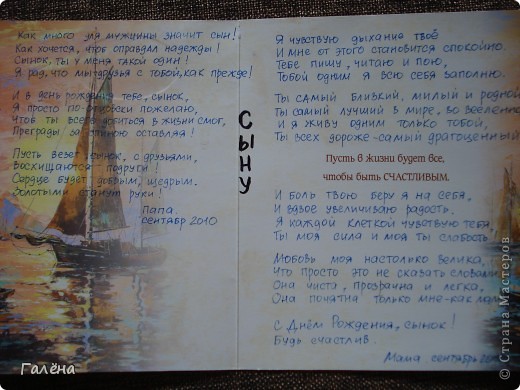 Как много для мужчины значит сын!
Как хочется, чтоб оправдал надежды!
Сынок, ты у меня такой один!
Я рад, что мы друзья с тобой, как прежде!
И в день рождения тебе, сынок,
Я просто по-отцовски пожелаю,
Чтоб ты всего добиться в жизни смог,
Преграды за спиною оставляя!
Пусть везёт, сынок, с друзьями,
Восхищаются подруги!
Сердце будет добрым, щедрым.
Золотыми станут руки!
Папа.
сентябр 2010
СЫНУ
Я чувствую дыхание твоё
И мне от этого становится спокойно.
Тебе пишу, читаю и пою,
Тобой одним я всю себя заполню.
Ты самый близкий, милый и родной
Ты самый лучший в мире, во вселенной
И я живу одним только тобой,
Ты всех дороже-самый драгоценный
Пусть в жизни будет все,
чтобы быть СЧАСТЛИВЫМ.
И боль твою беру я на себя,
И вдвое увеличиваю радость.
Я каждой клеткой чувствую тебя,
Ты моя сила и моя ты слабость.
Любовь моя настолько велика,
Что просто это не сказать словами
Она чиста, прозрачна и легка,
Она понятна только мне-как маме
С Днём Рождения, сынок!
Будь счастлив.
Мама сентябр
Галёна
© Страна Мастеров